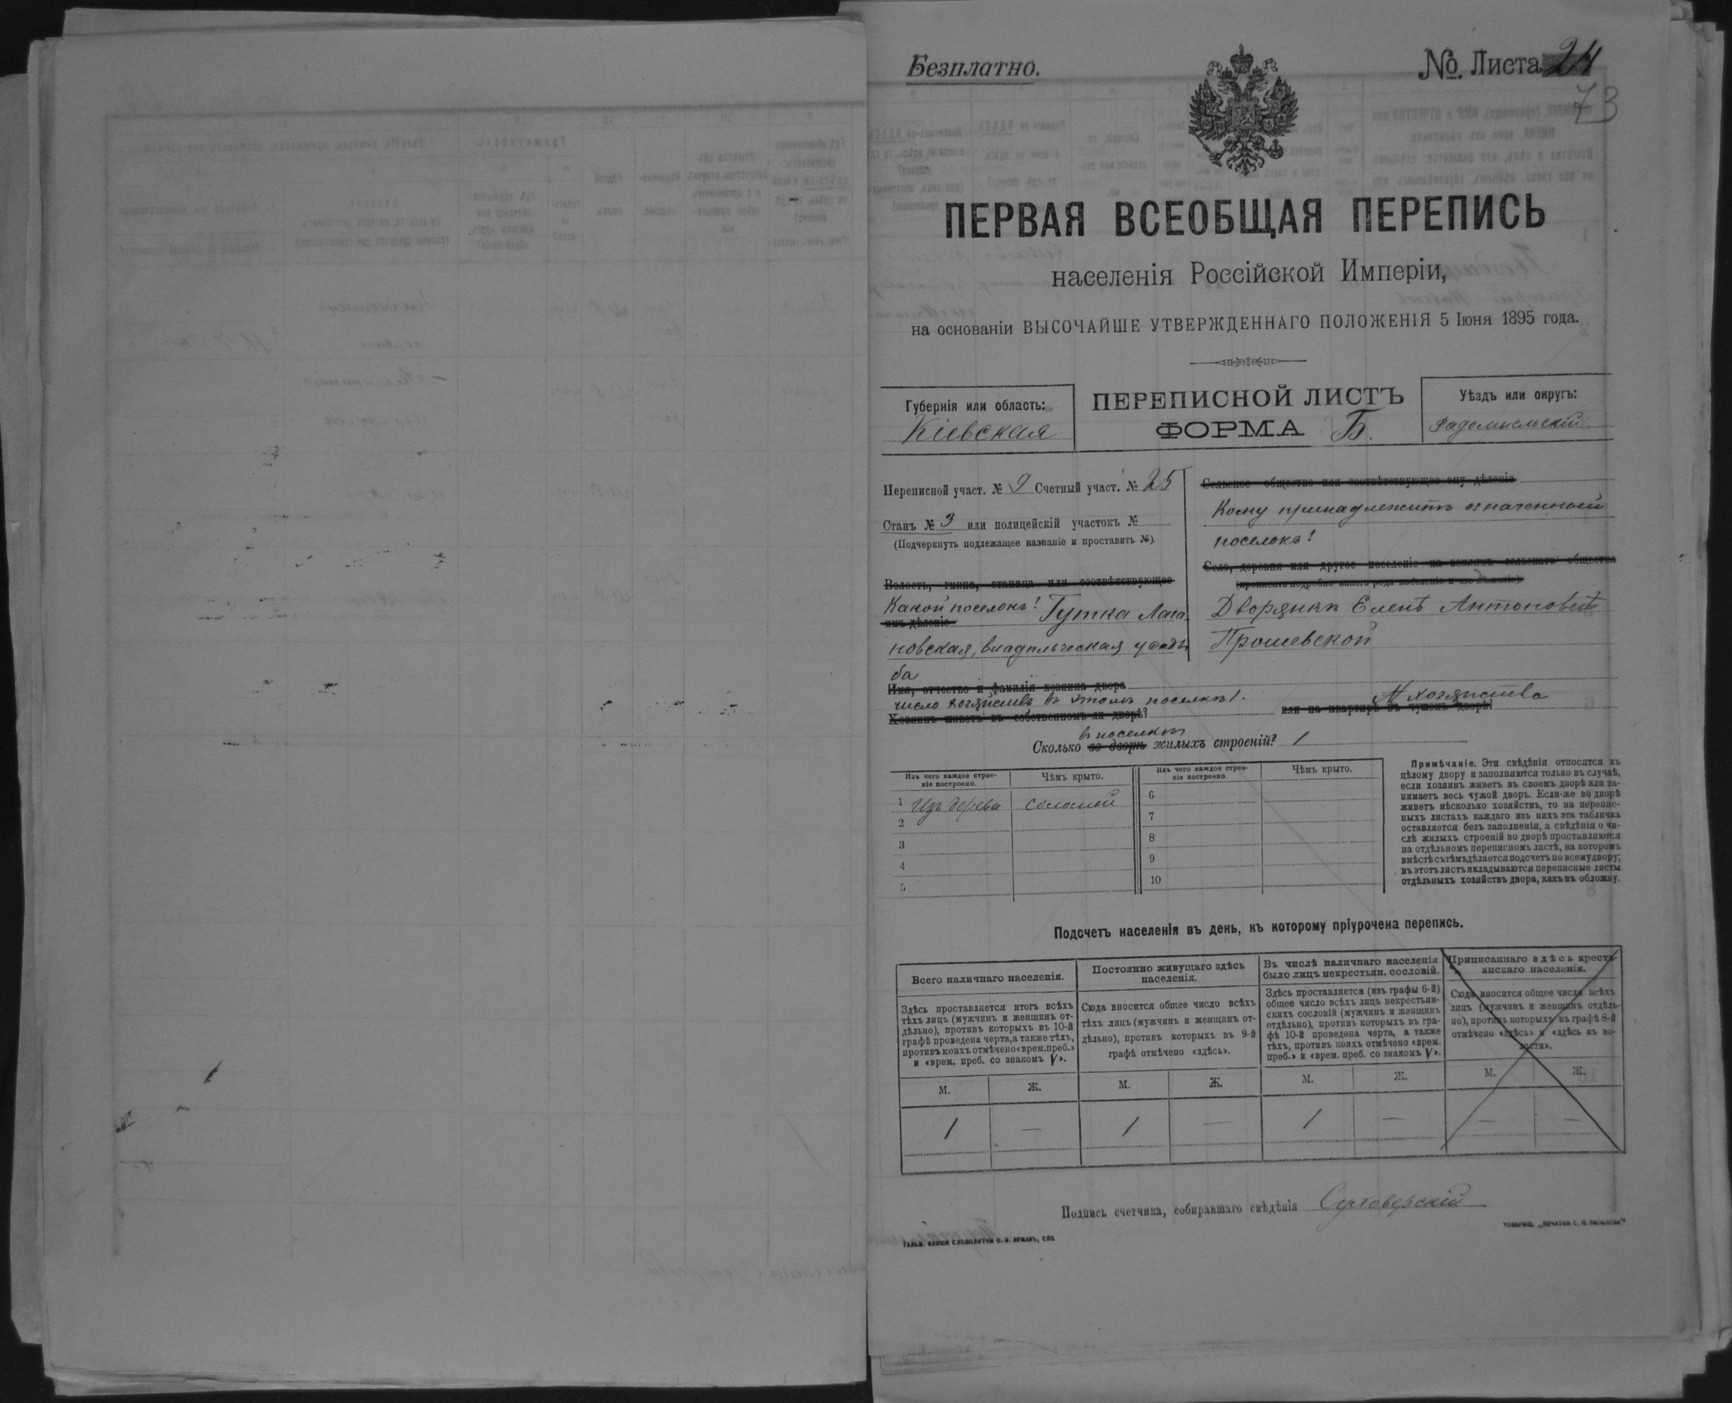 Безплатно.
№ Листа 24
73
ПЕРВАЯ ВСЕОБЩАЯ ПЕРЕПИСЬ
населенія Россійской Имперіи,
на основаніи ВЫСОЧАЙШЕ УТВЕРЖДЕННАГО ПОЛОЖЕНІЯ 5 Іюня 1895 года.
Губернія или область:
Кіевская
ПЕРЕПИСНОЙ ЛИСТЪ
ФОРМА Б.
Уѣздъ или округъ:
Радомысльскій
Переписной участ. № 9 Счетный участ. № 25
Станъ № 3 или полицейскій участокъ №
(Подчеркнуть подлежащее названіе и проставить №).
Волость, гмина, станица или соотвѣтствующее
Какой поселокъ? Гутка Лога
имъ дѣленіе
новская, владѣльческая усадь
ба
Сельское общество или соотвѣтствующее ему дѣленіе
Кому принадлежитъ означенный
поселокъ?
Село, деревня или другое поселеніе на земляхъ сельскаго общества
Дворянкѣ Еленѣ Антоновнѣ
Прошевской
Имя, отчество и фамилія хозяина двора
число хозяйствъ въ этомъ поселкѣ 1.
хозяйства
Хозяинъ живетъ въ собственномъ ли дворѣ?
или на квартирѣ въ чужомъ дворѣ?
въ поселкѣ
Сколько во дворѣ жилыхъ строеній? 1
Изъ чего каждое строе-
ніе построено.
Чѣмъ крыто.
Изъ чего каждое строе-
ніе построено.
Чѣмъ крыто.
1 Изъ дерева соломой
2
3
4
5
6
7
8
9
10
Примѣчаніе. Эти свѣдѣнія относятся къ
цѣлому двору и заполняются только въ случаѣ,
если хозяинъ живетъ въ своемъ дворѣ или за-
нимаетъ весь чужой дворъ. Если-же во дворѣ
живетъ нѣсколько хозяйствъ, то на перепис-
ныхъ листахъ каждаго изъ нихъ эта табличка
оставляется безъ заполненія, а свѣдѣнія о чи-
слѣ жилыхъ строеній во дворѣ проставляются
на отдѣльномъ переписномъ листѣ, на которомъ
вмѣстѣ съ тѣмъ дѣлается подсчетъ по всему двору;
въ этотъ листъ вкладываются переписные листы
отдѣльныхъ хозяйствъ двора, какъ въ обложку.
Подсчетъ населенія въ день, къ которому пріурочена перепись.
Всего наличнаго населенія.
Здѣсь проставляется итогъ всѣхъ
тѣхъ лицъ (мужчинъ и женщинъ от-
дѣльно), противъ которыхъ въ 10-й
графѣ проведена черта, а также тѣхъ,
противъ коихъ отмѣчено «врем. преб.»
и «врем. преб. со знакомъ V».
Постоянно живущаго здѣсь
населенія.
Сюда вносится общее число всѣхъ
тѣхъ лицъ (мужчинъ и женщинъ от-
дѣльно), противъ которыхъ въ 9-й
графѣ отмѣчено «здѣсь».
Въ числѣ наличнаго населенія
было лицъ некрестьян. сословій.
Здѣсь проставляется (изъ графы 6-й)
общее число всѣхъ лицъ некрестьян-
скихъ сословій (мужчинъ и женщинъ
отдѣльно), противъ которыхъ въ гра-
фѣ 10-й проведена черта, а также
тѣхъ, противъ коихъ отмѣчено «врем.
преб.» и «врем. преб. со знакомъ V».
Приписаннаго здѣсь кресть-
янскаго населенія.
Сюда вносится общее число всѣхъ
лицъ (мужчинъ и женщинъ отдѣль-
но), противъ которыхъ въ графѣ 8-й
отмѣчено «здѣсь» и «здѣсь къ во-
лости».
М. Ж. М. Ж. М. Ж. М. Ж.
1 — 1 — 1 — — —
Подпись счетчика, собиравшаго свѣдѣнія Суховерскій